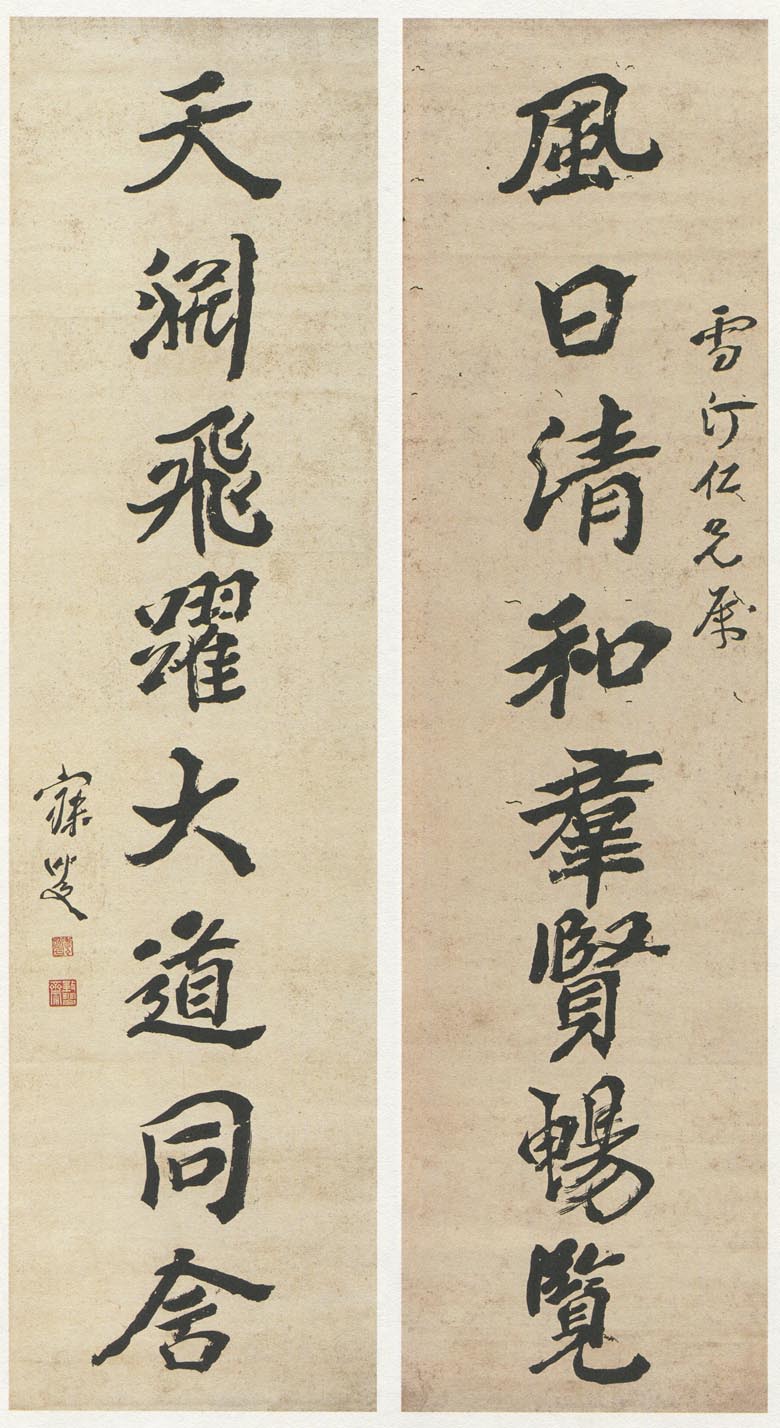 雪汀仁兄属
風日清和羣賢暢覽
天淵飛躍大道同含
寐叟